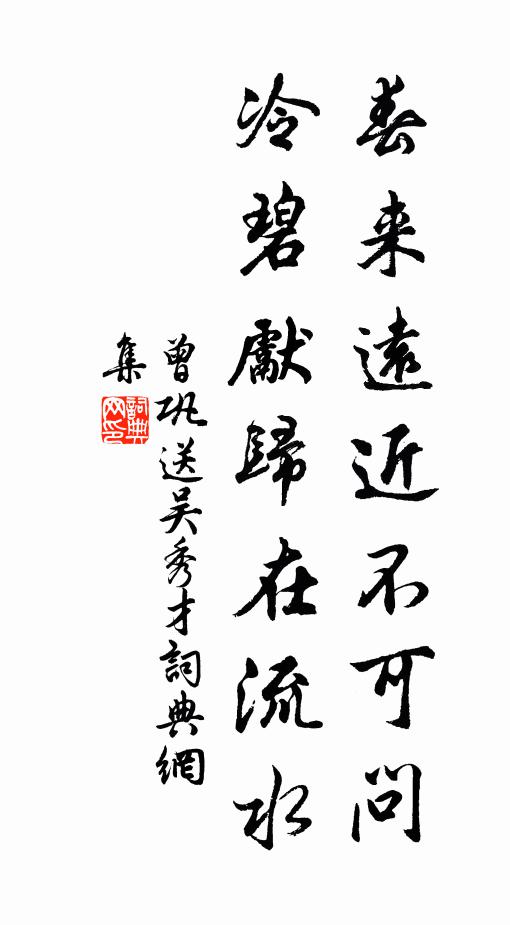 春来遠近不可問
冷碧獻歸在流水
曾巩送吴秀才詞典網
集
詞典網印